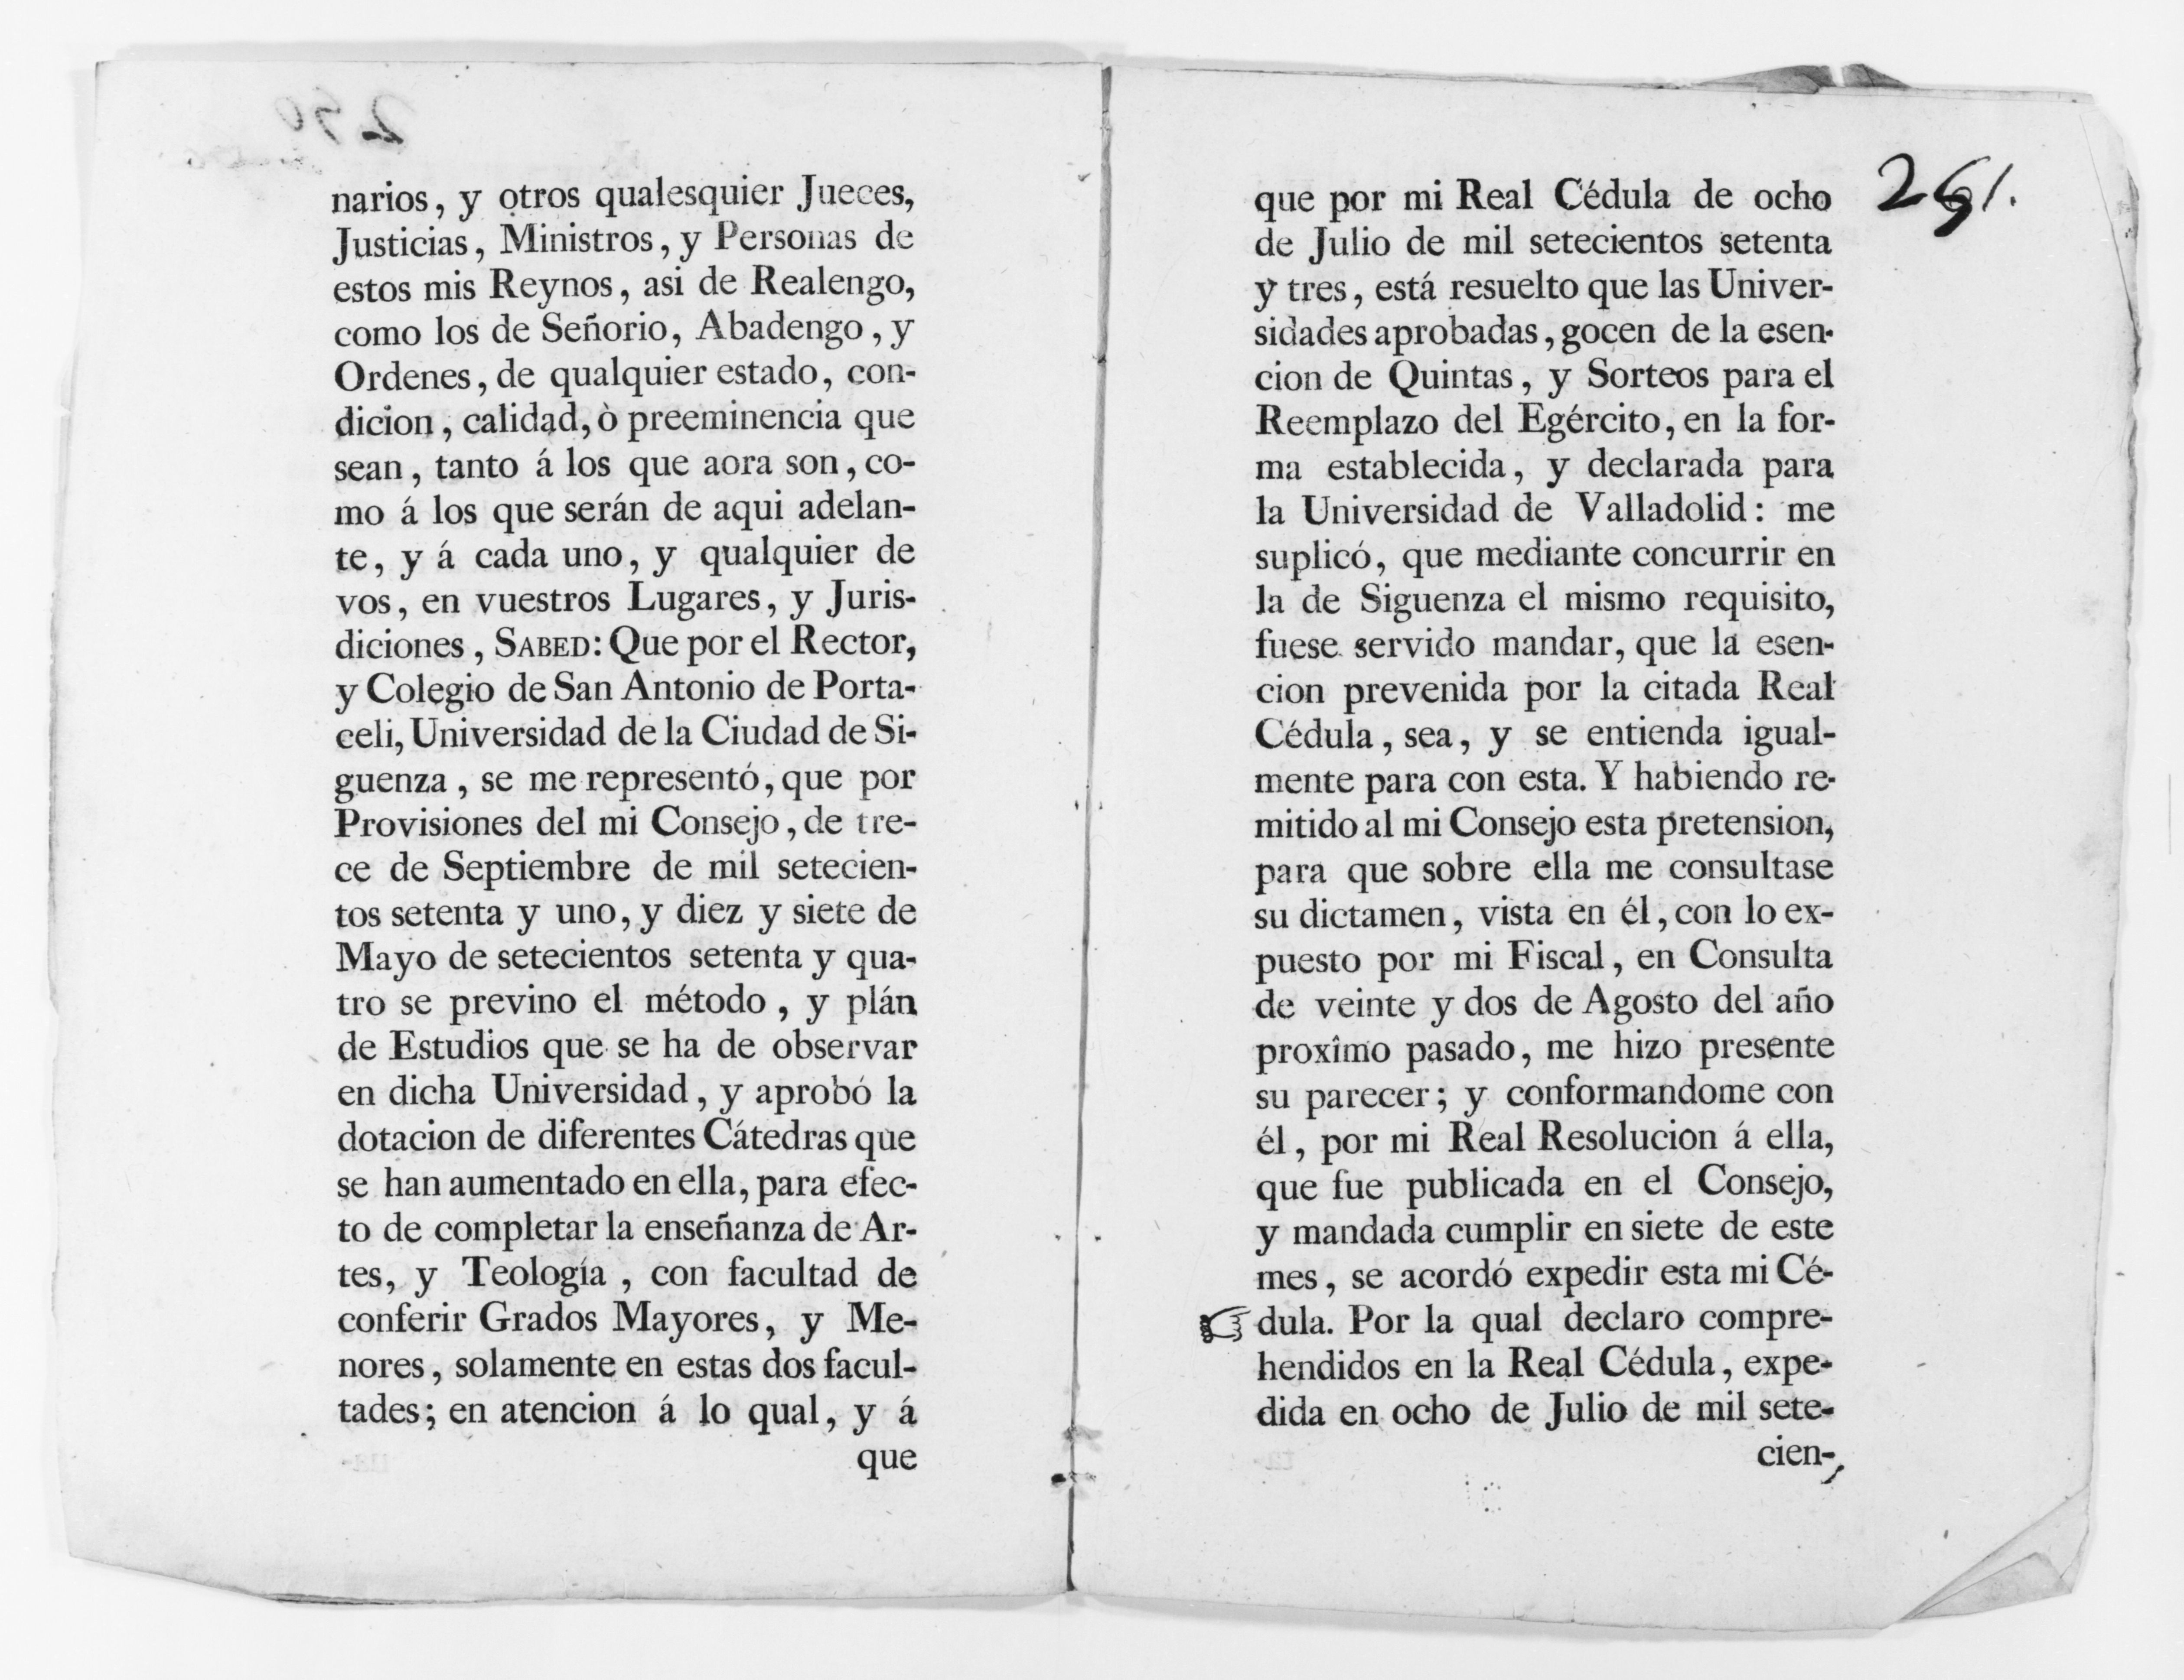 narios, y otros qualesquier Jueces,
Justicias, Ministros, y Personas de
estos mis Reynos, asi de Realengo,
como los de Señorio, Abadengo, y
Ordenes, de qualquier estado, con-
dicion, calidad, ò preeminencia que
sean, tanto á los que aora son, co-
mo á los que serán de aqui adelan-
te, y á cada uno, y qualquier de
vos, en vuestros Lugares, y Juris-
diciones, SABED: Que por el Rector,
y Colegio de San Antonio de Porta-
celi, Universidad de la Ciudad de Si-
guenza, se me representó, que por
Provisiones del mi Consejo, de tre-
ce de Septiembre de mil setecien-
tos setenta y uno, y diez y siete de
Mayo de setecientos setenta y qua-
tro se previno el método, y plán
de Estudios que se ha de observar
en dicha Universidad, y aprobó la
dotacion de diferentes Cátedras que
se han aumentado en ella, para efec-
to de completar la enseñanza de Ar-
tes, y Teología, con facultad de
conferir Grados Mayores, y Me-
nores, solamente en estas dos facul-
tades; en atencion á lo qual, y á
que
que por mi Real Cédula de ocho
de Julio de mil setecientos setenta
y tres, está resuelto que las Univer-
sidades aprobadas, gocen de la esen-
cion de Quintas, y Sorteos para el
Reemplazo del Egército, en la for-
ma establecida, y declarada para
la Universidad de Valladolid: me
suplicó, que mediante concurrir en
la de Siguenza el mismo requisito,
fuese servido mandar, que la esen-
cion prevenida por la citada Real
Cédula, sea, y se entienda igual-
mente para con esta. Y habiendo re-
mitido al mi Consejo esta pretension,
para que sobre ella me consultase
su dictamen, vista en él, con lo ex-
puesto por mi Fiscal, en Consulta
de veinte y dos de Agosto del año
proxîmo pasado, me hizo presente
su parecer; y conformandome con
él, por mi Real Resolucion á ella,
que fue publicada en el Consejo,
y mandada cumplir en siete de este
mes, se acordó expedir esta mi Cé-
☞ dula. Por la qual declaro compre-
hendidos en la Real Cédula, expe-
dida en ocho de Julio de mil sete-
cien-